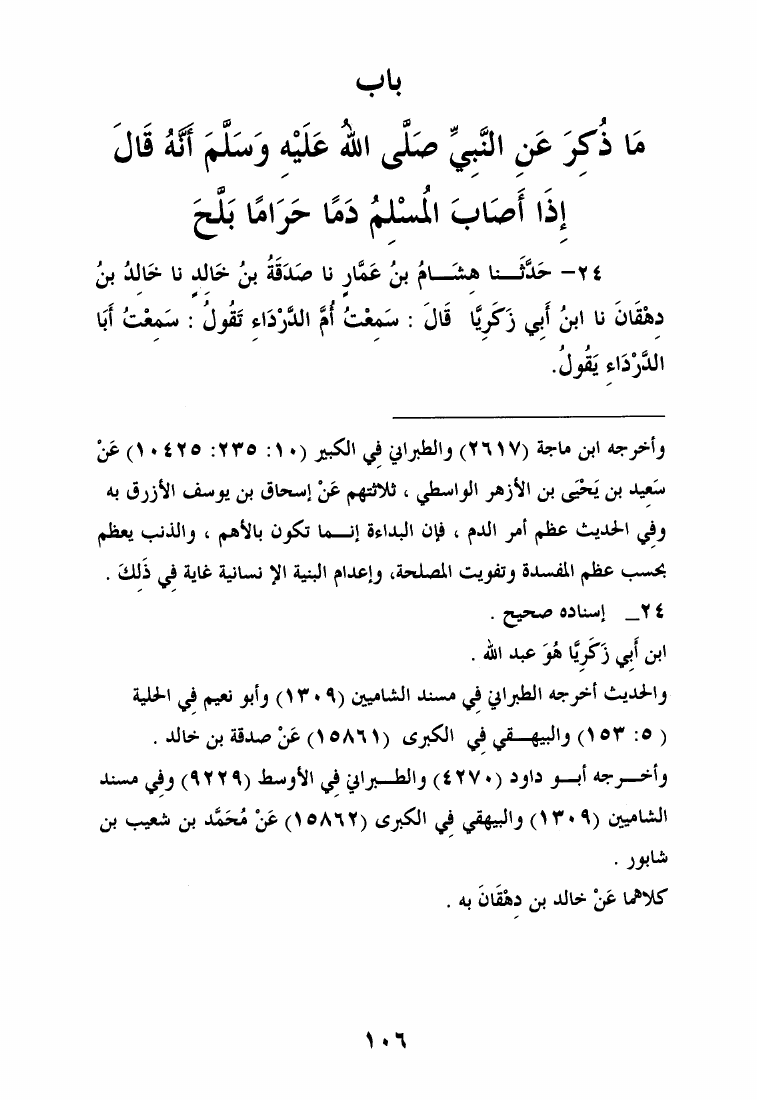 باب
مَا ذُكِرَ عَنِ النَّبِيِّ صَلَّى اللهُ عَلَيْهِ وَسَلَّمَ أَنَّهُ قَالَ
إِذَا أَصَابَ الْمُسْلِمُ دَمًا حَرَامًا بَلَّحَ
٢٤- حَدَّثَـــنا هِشَـــامُ بنُ عَمَّارٍ نا صَدَقَةُ بنُ خَالِدٍ نا خَالِدُ بنُ
دِهْقَانَ نا ابنُ أَبِي زَكَرِيَّا قَالَ : سَمِعْتُ أُمَّ الدَّرْدَاءِ تَقُولُ : سَمِعْتُ أَبَا
الدَّرْدَاءِ يَقُولُ.
وأخرجه ابن ماجة (٢٦١٧) والطبراني في الكبير (١٠: ٢٣٥: ١٠٤٢٥) عَنْ
سَعِيد بن يَحْيَى بن الأزهر الواسطي ، ثلاثتهم عَنْ إسحاق بن يوسف الأزرق به
وفي الحديث عظم أمر الدم ، فإن البداءة إنـــما تكون بالأهم ، والذنب يعظم
بحسب عظم المفسدة وتفويت المصلحة، وإعدام البنية الإ نسانية غاية في ذَلِكَ .
٢٤_ إسناده صحيح .
ابن أَبِي زَكَرِيَّا هُوَ عبد الله .
والحديث أخرجه الطبراني في مسند الشاميين (١٣٠٩) وأبو نعيم في الحلية
( ٥: ١٥٣) والبيهـــقي في الكبرى (١٥٨٦١) عَنْ صدقة بن خالد .
وأخـــرجه أبـــو داود (٤٢٧٠) والطـــبراني في الأوسط (٩٢٢٩) وفي مسند
الشاميين (١٣٠٩) والبيهقي في الكبرى (١٥٨٦٢) عَنْ مُحَمَّد بن شعيب بن
شابور .
كلاهما عَنْ خالد بن دِهْقَانَ به .
١٠٦